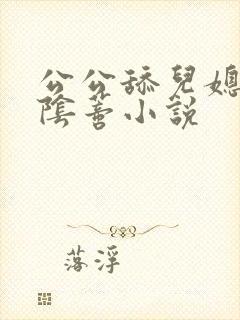 公公舔兒媳
陰蒂小説
落浮